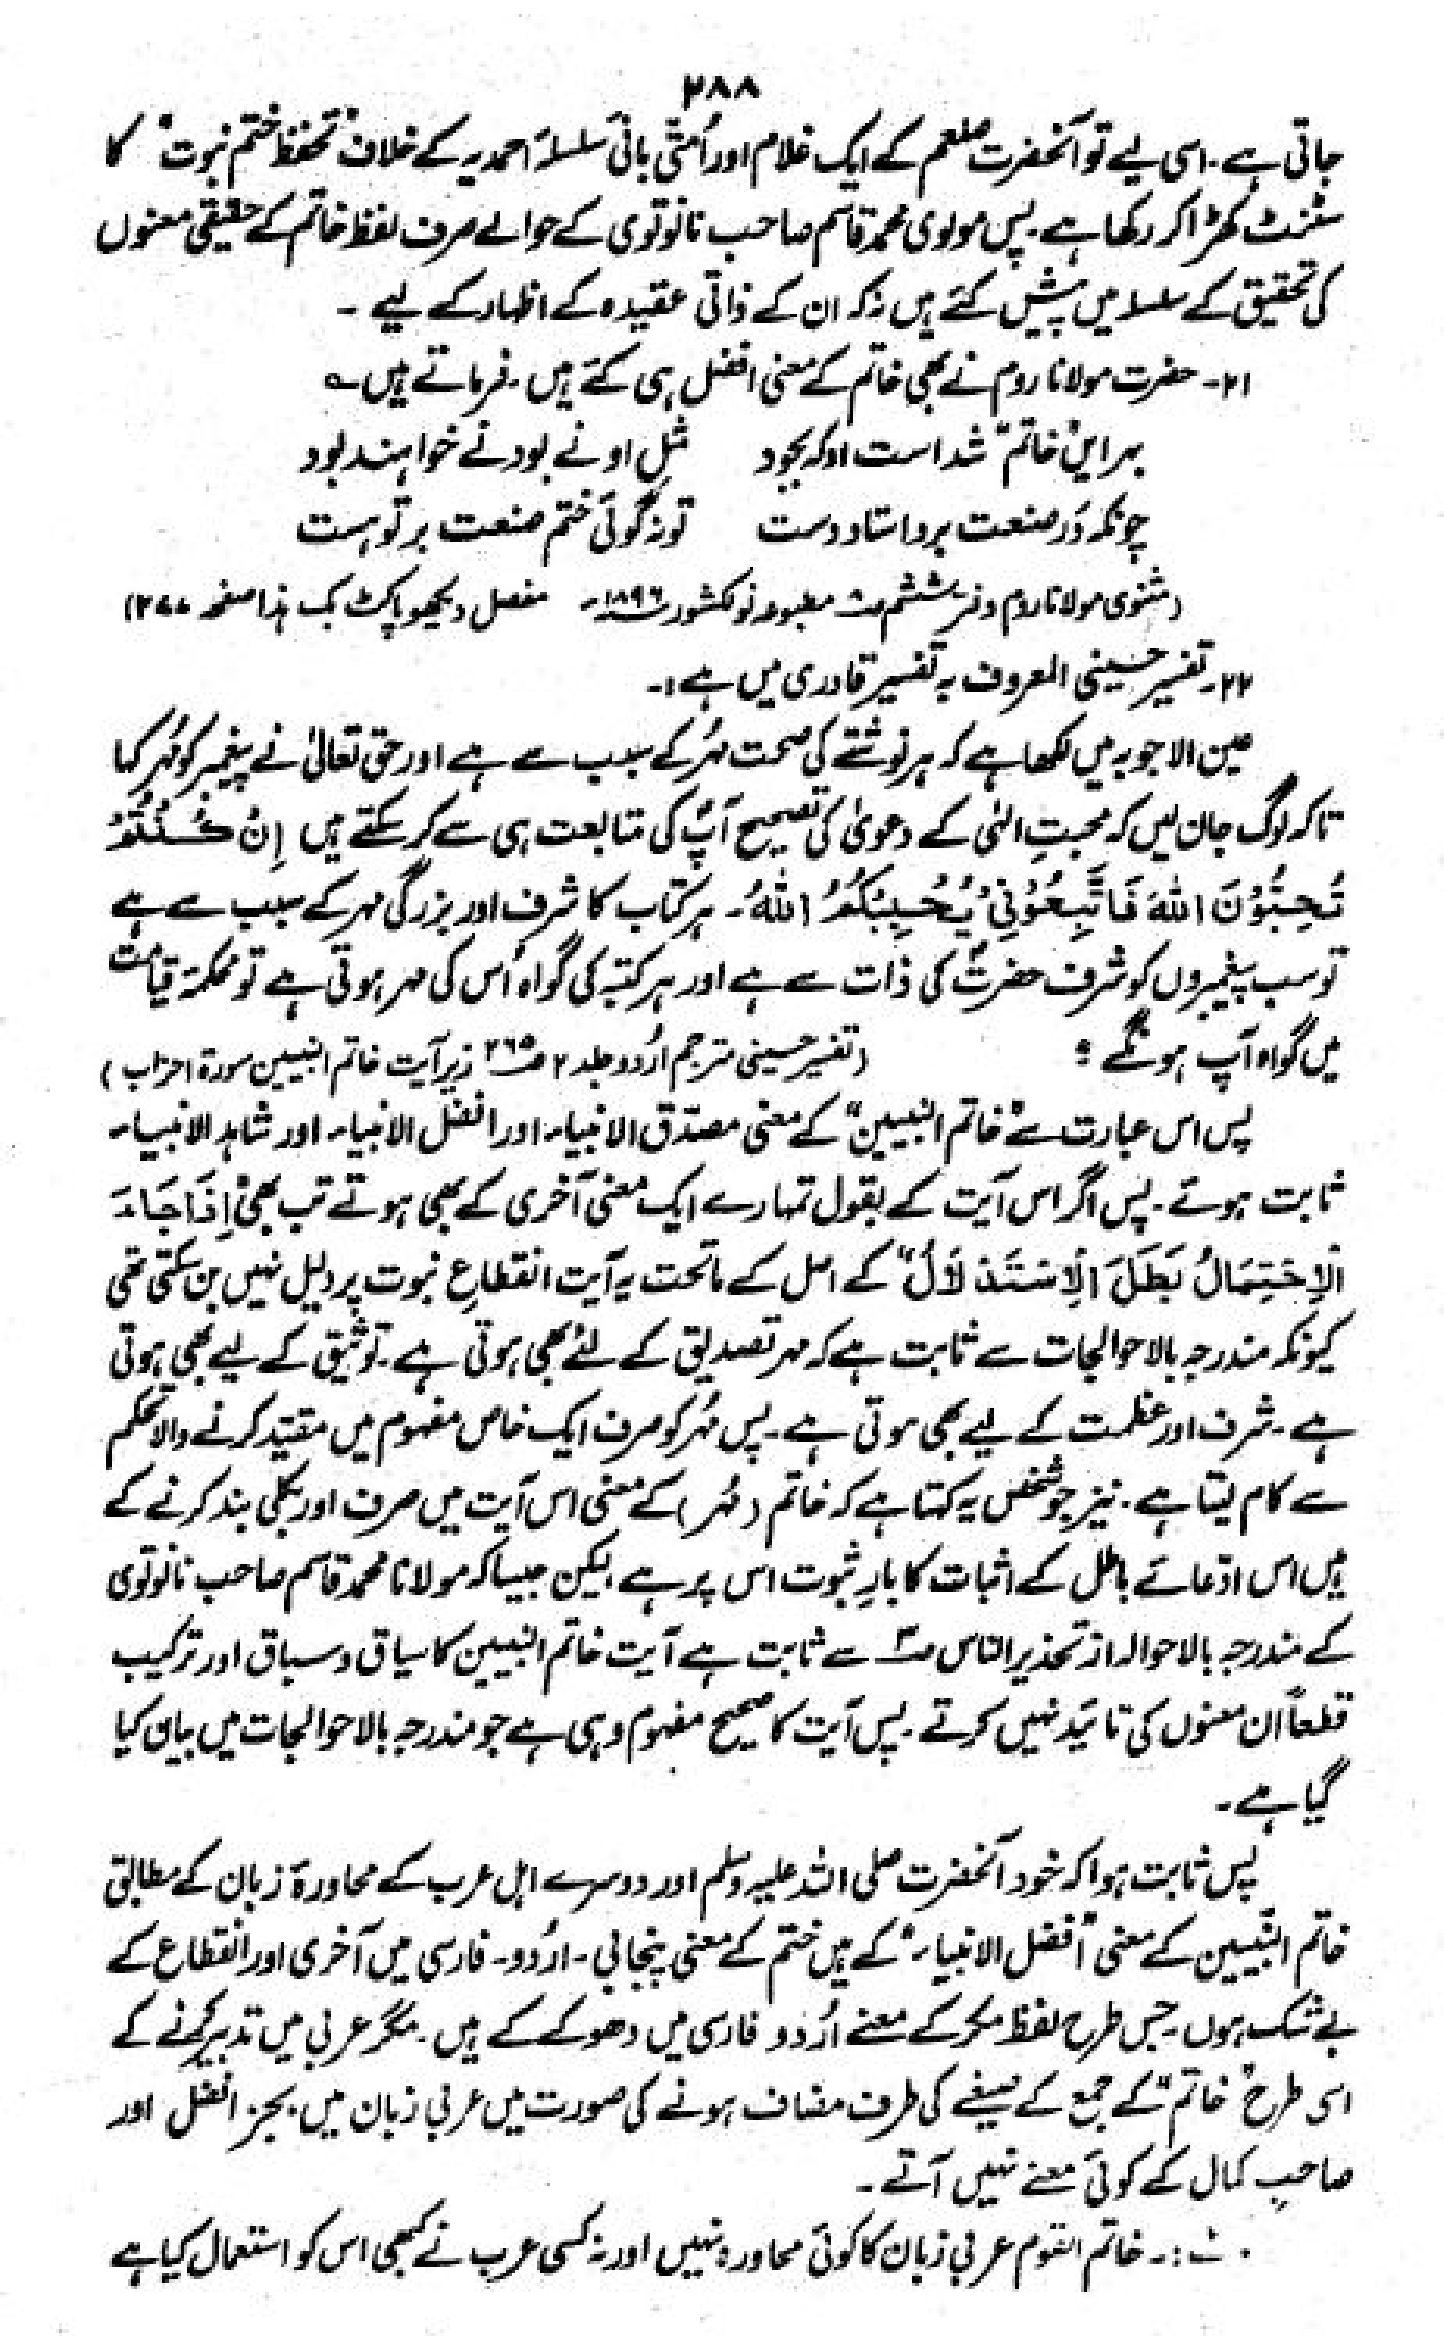 ۲۸۸
جاتی ہے۔ اسی لیے تو آنحضرت صلعم کے ایک غلام اور اُمتی بانیٔ سلسلہ احمدیہ کے خلاف "تحفظ ختم نبوت" کا
سٹنٹ کھڑا کر رکھا ہے۔ پس مولوی محمد قاسم صاحب نانوتوی کے حوالے صرف لفظ خاتم کے حقیقی معنوں
کی تحقیق کے سلسلہ میں پیش کئے ہیں نہ کہ ان کے ذاتی عقیدہ کے اظہار کے لیے ۔
۲۱۔ حضرت مولانا روم نے بھی خاتم کے معنی افضل ہی کئے ہیں۔ فرماتے ہیں ؎
بہر ایں "خاتم" شد است او کہ بجود مثلِ او نے بود نے خواہند بود
چونکہ در صنعت برد استاد دست تو نہ گوئی ختم صنعت بر تو ہست
(مثنوی مولانا روم دفتر ششم ص۸ مطبوعہ نولکشور ۱۸۹۶ء۔ مفصل دیکھو پاکٹ بک ہذا صفحہ ۲۷۷)
۲۲۔ تفسیر حسینی المعروف بہ تفسیر قادری میں ہے :۔
عین الاجوبہ میں لکھا ہے کہ ہر نوشتے کی صحت مُہر کے سبب سے ہے اور حق تعالیٰ نے پیغمبر کو مُہر کہا
تاکہ لوگ جان لیں کہ محبتِ الٰہی کے دعویٰ کی تصحیح آپؐ کی متابعت ہی سے کر سکتے ہیں اِنْ كُنْتُمْ
تُحِبُّوْنَ اللهَ فَاتَّبِعُوْنِيْ يُحْبِبْكُمُ اللهُ۔ ہر کتاب کا شرف اور بزرگی مہر کے سبب سے ہے
تو سب پیغمبروں کو شرف حضرتؐ کی ذات سے ہے اور ہر کتبہ کی گواہ اُس کی مہر ہوتی ہے تو محکمۂ قیامت
میں گواہ آپ ہونگے " (تفسیر حسینی مترجم اُردو جلد ۲ ص۲۶۵ زیر آیت خاتم النبیین سورۃ احزاب)
پس اس عبارت سے "خاتم النبیین" کے معنی مصدّق الانبیاء اور افضل الانبیاء اور شاہد الانبیاء
ثابت ہوئے۔ پس اگر اس آیت کے بقول تمہارے ایک معنی آخری کے بھی ہوتے تب بھی "اِذَا جَاءَ
الْاِحْتِمَالُ بَطَلَ الْاِسْتَدْلَالُ" کے اصل کے ماتحت یہ آیت انقطاعِ نبوت پر دلیل نہیں بن سکتی تھی
کیونکہ مندرجہ بالا حوالجات سے ثابت ہے کہ مہر تصدیق کے لئے بھی ہوتی ہے۔ توثیق کے لیے بھی ہوتی
ہے۔ شرف اور عظمت کے لیے بھی ہوتی ہے۔ پس مُہر کو صرف ایک خاص مفہوم میں مقید کرنے والا تحکم
سے کام لیتا ہے۔ نیز جو شخص یہ کہتا ہے کہ خاتم (مُہر) کے معنی اس آیت میں صرف اور بکلی بند کرنے کے
ہیں اس ادّعائے باطل کے اثبات کا بارِ ثبوت اس پر ہے لیکن جیسا کہ مولانا محمد قاسم صاحب نانوتوی
کے مندرجہ بالا حوالہ از تحذیر الناس سے ثابت ہے آیت خاتم النبیین کا سیاق و سباق اور ترکیب
قطعاً ان معنوں کی تائید نہیں کرتے۔ پس آیت کا صحیح مفہوم وہی ہے جو مندرجہ بالا حوالجات میں بیان کیا
گیا ہے۔
پس ثابت ہوا کہ خود آنحضرت صلی اللہ علیہ وسلم اور دوسرے اہل عرب کے محاورۂ زبان کے مطابق
خاتم النبیین کے معنی "افضل الانبیاء" کے ہیں ختم کے معنی پنجابی۔ اردو۔ فارسی میں آخری اور انقطاع کے
بے شک ہوں۔ جس طرح لفظ مکر کے معنے اُردو فارسی میں دھوکے کے ہیں۔ مگر عربی میں تدبیر کرنے کے
اسی طرح "خاتم" کے جمع کے صیغے کی طرف مضاف ہونے کی صورت میں عربی زبان میں بجز افضل اور
صاحبِ کمال کے کوئی معنے نہیں آتے۔
خاتم القوم عربی زبان کا کوئی محاورہ نہیں اور نہ کسی عرب نے کبھی اس کو استعمال کیا ہے